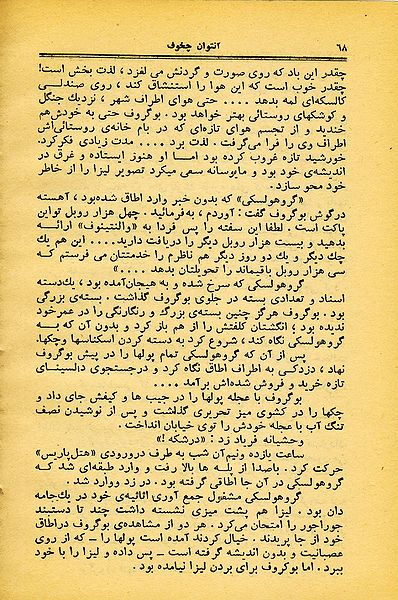 ۶۸
آنتوان چخوف
چقدر این باد که روی صورت و گردنش می لغزد ، لذت بخش است!
چقدر خوب است که این هوا را استنشاق کند ، روی صندلی
کالسکه‌ای لمه بدهد .... حتی هوای اطراف شهر ، نزدیک جنگل
و کوشکهای روستائی بهتر خواهد بود . بوگروف حتی به خودش‌هم
خندید و از تجسم هوای تازه‌ای که در بام خانه‌ی روستائی‌اش
اطراف وی را فرا می‌گرفت . لذت برد .... مدت زیادی فکرکرد.
خورشید تازه غروب کرده بود اما او هنوز ایستاده و غرق در
اندیشه‌ی خود بود و مایوسانه سعی میکرد تصویر لیزا را از خاطر
خود محو سازد.
«گروهولسکی» که بدون خبر وارد اطاق شده‌بود ، آهسته
درگوش بوگروف گفت : آوردم ، به‌فرمائید . چهل هزار روبل تواین
پاکت است . لطفا این سفته را پس فردا به «والنتینوف» ارائه
بدهید و بیست هزار روبل دیگر را دریافت دارید.... این هم یک
چك دیگر و یک دو روز دیگر هم ناظرم را خدمتتان می فرستم که
سی هزار روبل باقیماند را تحویلتان بدهد ....»
گروهولسکی که سرخ شده و به هیجان‌آمده بود ، یک‌دسته
اسناد و تعدادی بسته در جلوی بوگروف گذاشت . بسته‌ی بزرگی
بود . بوگروف هرگز چنین بسته‌ی بزرگ و رنگارنگی را در عمرخود
ندیده بود ، انگشتان کلفتش را از هم باز کرد و بدون آن که به
گروهولسکی نگاه کند ، شروع کرد به دسته کردن اسکناسها وچکها.
پس از آن که گروهولسکی تمام پولها را در پیش بوگروف
نهاد ، دزدکی به اطراف اطاق نگاه کرد و درجستجوی دالسینای
تازه خرید و فروش شده‌اش برآمد ....
بوگروف با عجله پولها را در جیب ها و کیفش جای داد و
چکها را در کشوی میز تحریری گذاشت و پس از نوشیدن نصف
تنگ آب با عجله خودش را توی خیابان انداخت .
وحشیانه فریاد زد : «درشکه !»
ساعت یازده ونیم‌آن شب به طرف درورودی «هتل‌پاریس»
حرکت کرد . باصدا از پله ها بالا رفت و وارد طبقه‌ای شد که
گروهولسکی در آن جا اطاقی گرفته بود . در زد ووارد شد .
گروهولسکی مشغول جمع آوری اثاثیه‌ی خود در یک‌جامه
دان بود . لیزا هم پشت میزی نشسته داشت چند تا دستبند
جوراجور را امتحان می‌کرد . هر دو از مشاهده‌ی بوگروف دراطاق
خود از جا پریدند . خیال کردند آمده است پولها را ــ که از روی
عصبانیت و بدون اندیشه گرفته است ــ پس داده و لیزا را با خود
ببرد . اما بوگروف برای بردن لیزا نیامده بود .